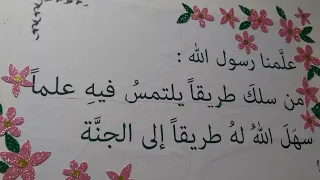 علَّمنا رسول الله :
من سلكَ طريقاً يلتمسُ فيهِ علماً
سهَلَ اللهُ لهُ طريقاً إلى الجنَّة